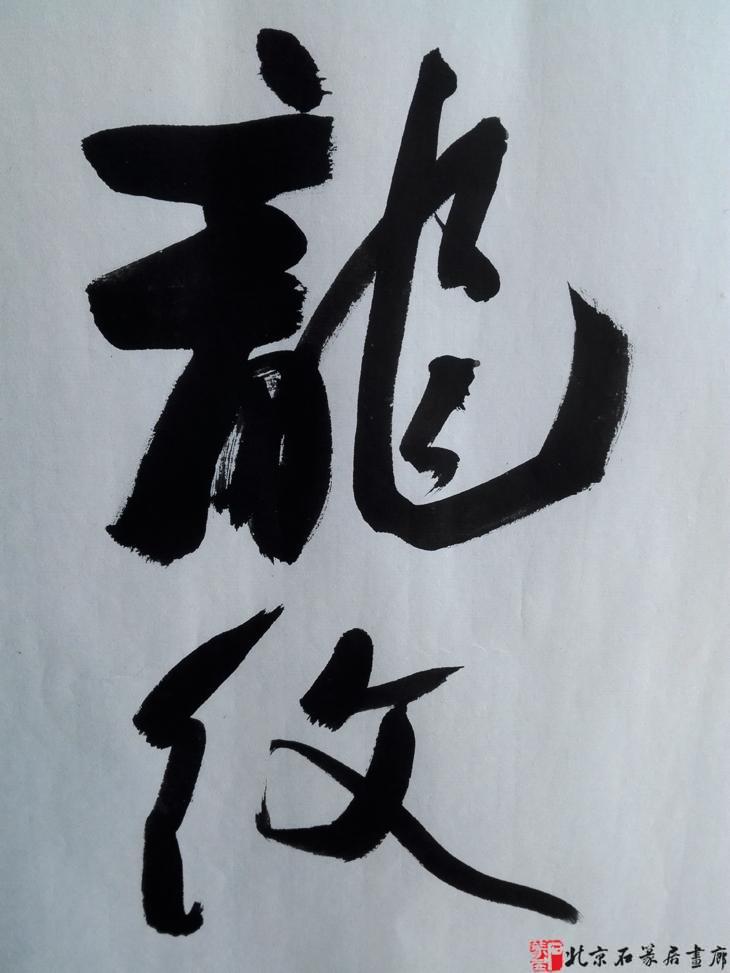 龍
紋
北京石篆居畫廊